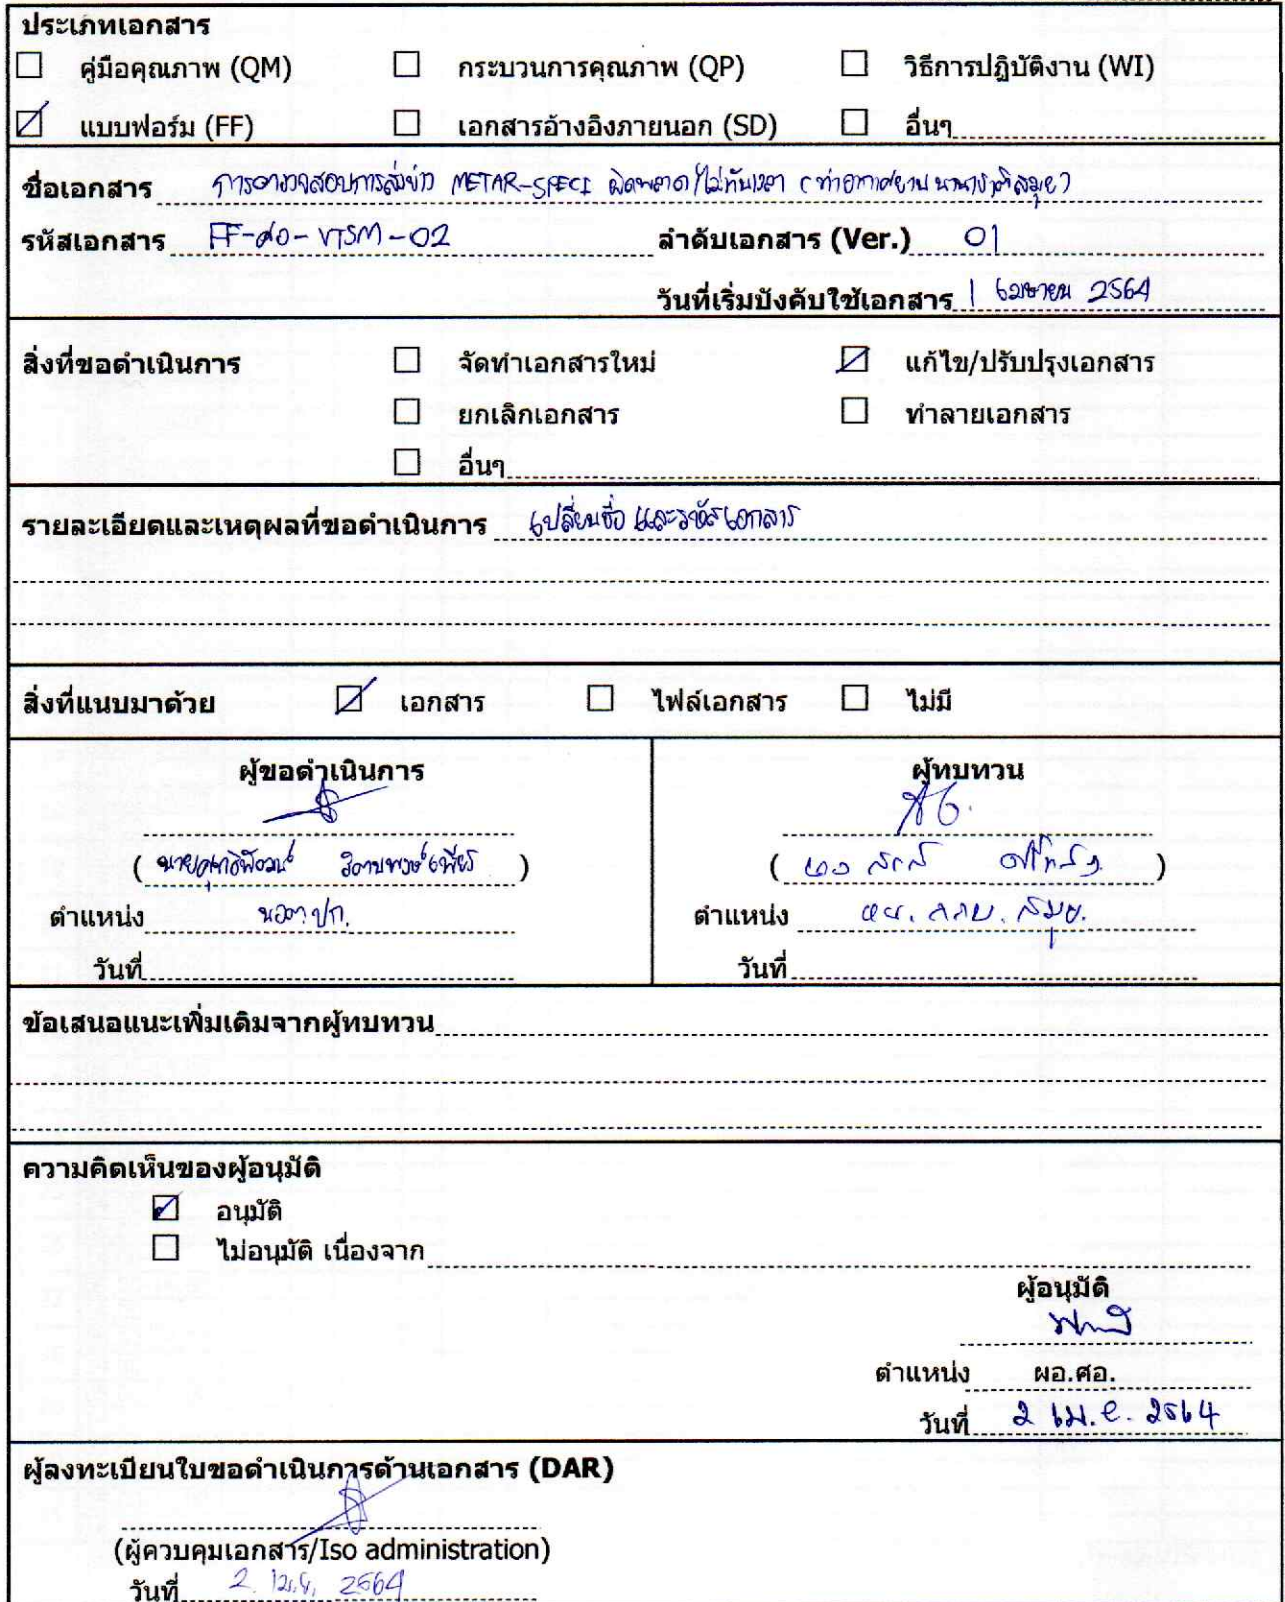 ประเภทเอกสาร
คู่มือคุณภาพ (QM) กระบวนการคุณภาพ (QP) วิธีการปฏิบัติงาน (WI)
แบบฟอร์ม (FF) เอกสารอ้างอิงภายนอก (SD) อื่นๆ
ชื่อเอกสาร การตรวจสอบการส่งข่าว METAR-SPECI ผิดพลาด/ไม่ทันเวลา (ท่าอากาศยานนานาชาติสมุย)
รหัสเอกสาร FF-ศอ-VTSM-02 ลำดับเอกสาร (Ver.) 01
วันที่เริ่มบังคับใช้เอกสาร 1 เมษายน 2564
สิ่งที่ขอดำเนินการ จัดทำเอกสารใหม่ แก้ไข/ปรับปรุงเอกสาร
ยกเลิกเอกสาร ทำลายเอกสาร
อื่นๆ
รายละเอียดและเหตุผลที่ขอดำเนินการ เปลี่ยนชื่อ และรหัสเอกสาร
สิ่งที่แนบมาด้วย เอกสาร ไฟล์เอกสาร ไม่มี
ผู้ขอดำเนินการ ผู้ทบทวน
ตำแหน่ง ตำแหน่ง
วันที่ วันที่
ข้อเสนอแนะเพิ่มเติมจากผู้ทบทวน
ความคิดเห็นของผู้อนุมัติ
อนุมัติ
ไม่อนุมัติ เนื่องจาก
ผู้อนุมัติ
ตำแหน่ง ผอ.ศอ.
วันที่ 2 เม.ย. 2564
ผู้ลงทะเบียนใบขอดำเนินการด้านเอกสาร (DAR)
(ผู้ควบคุมเอกสาร/Iso administration)
วันที่ 2 เม.ย. 2564